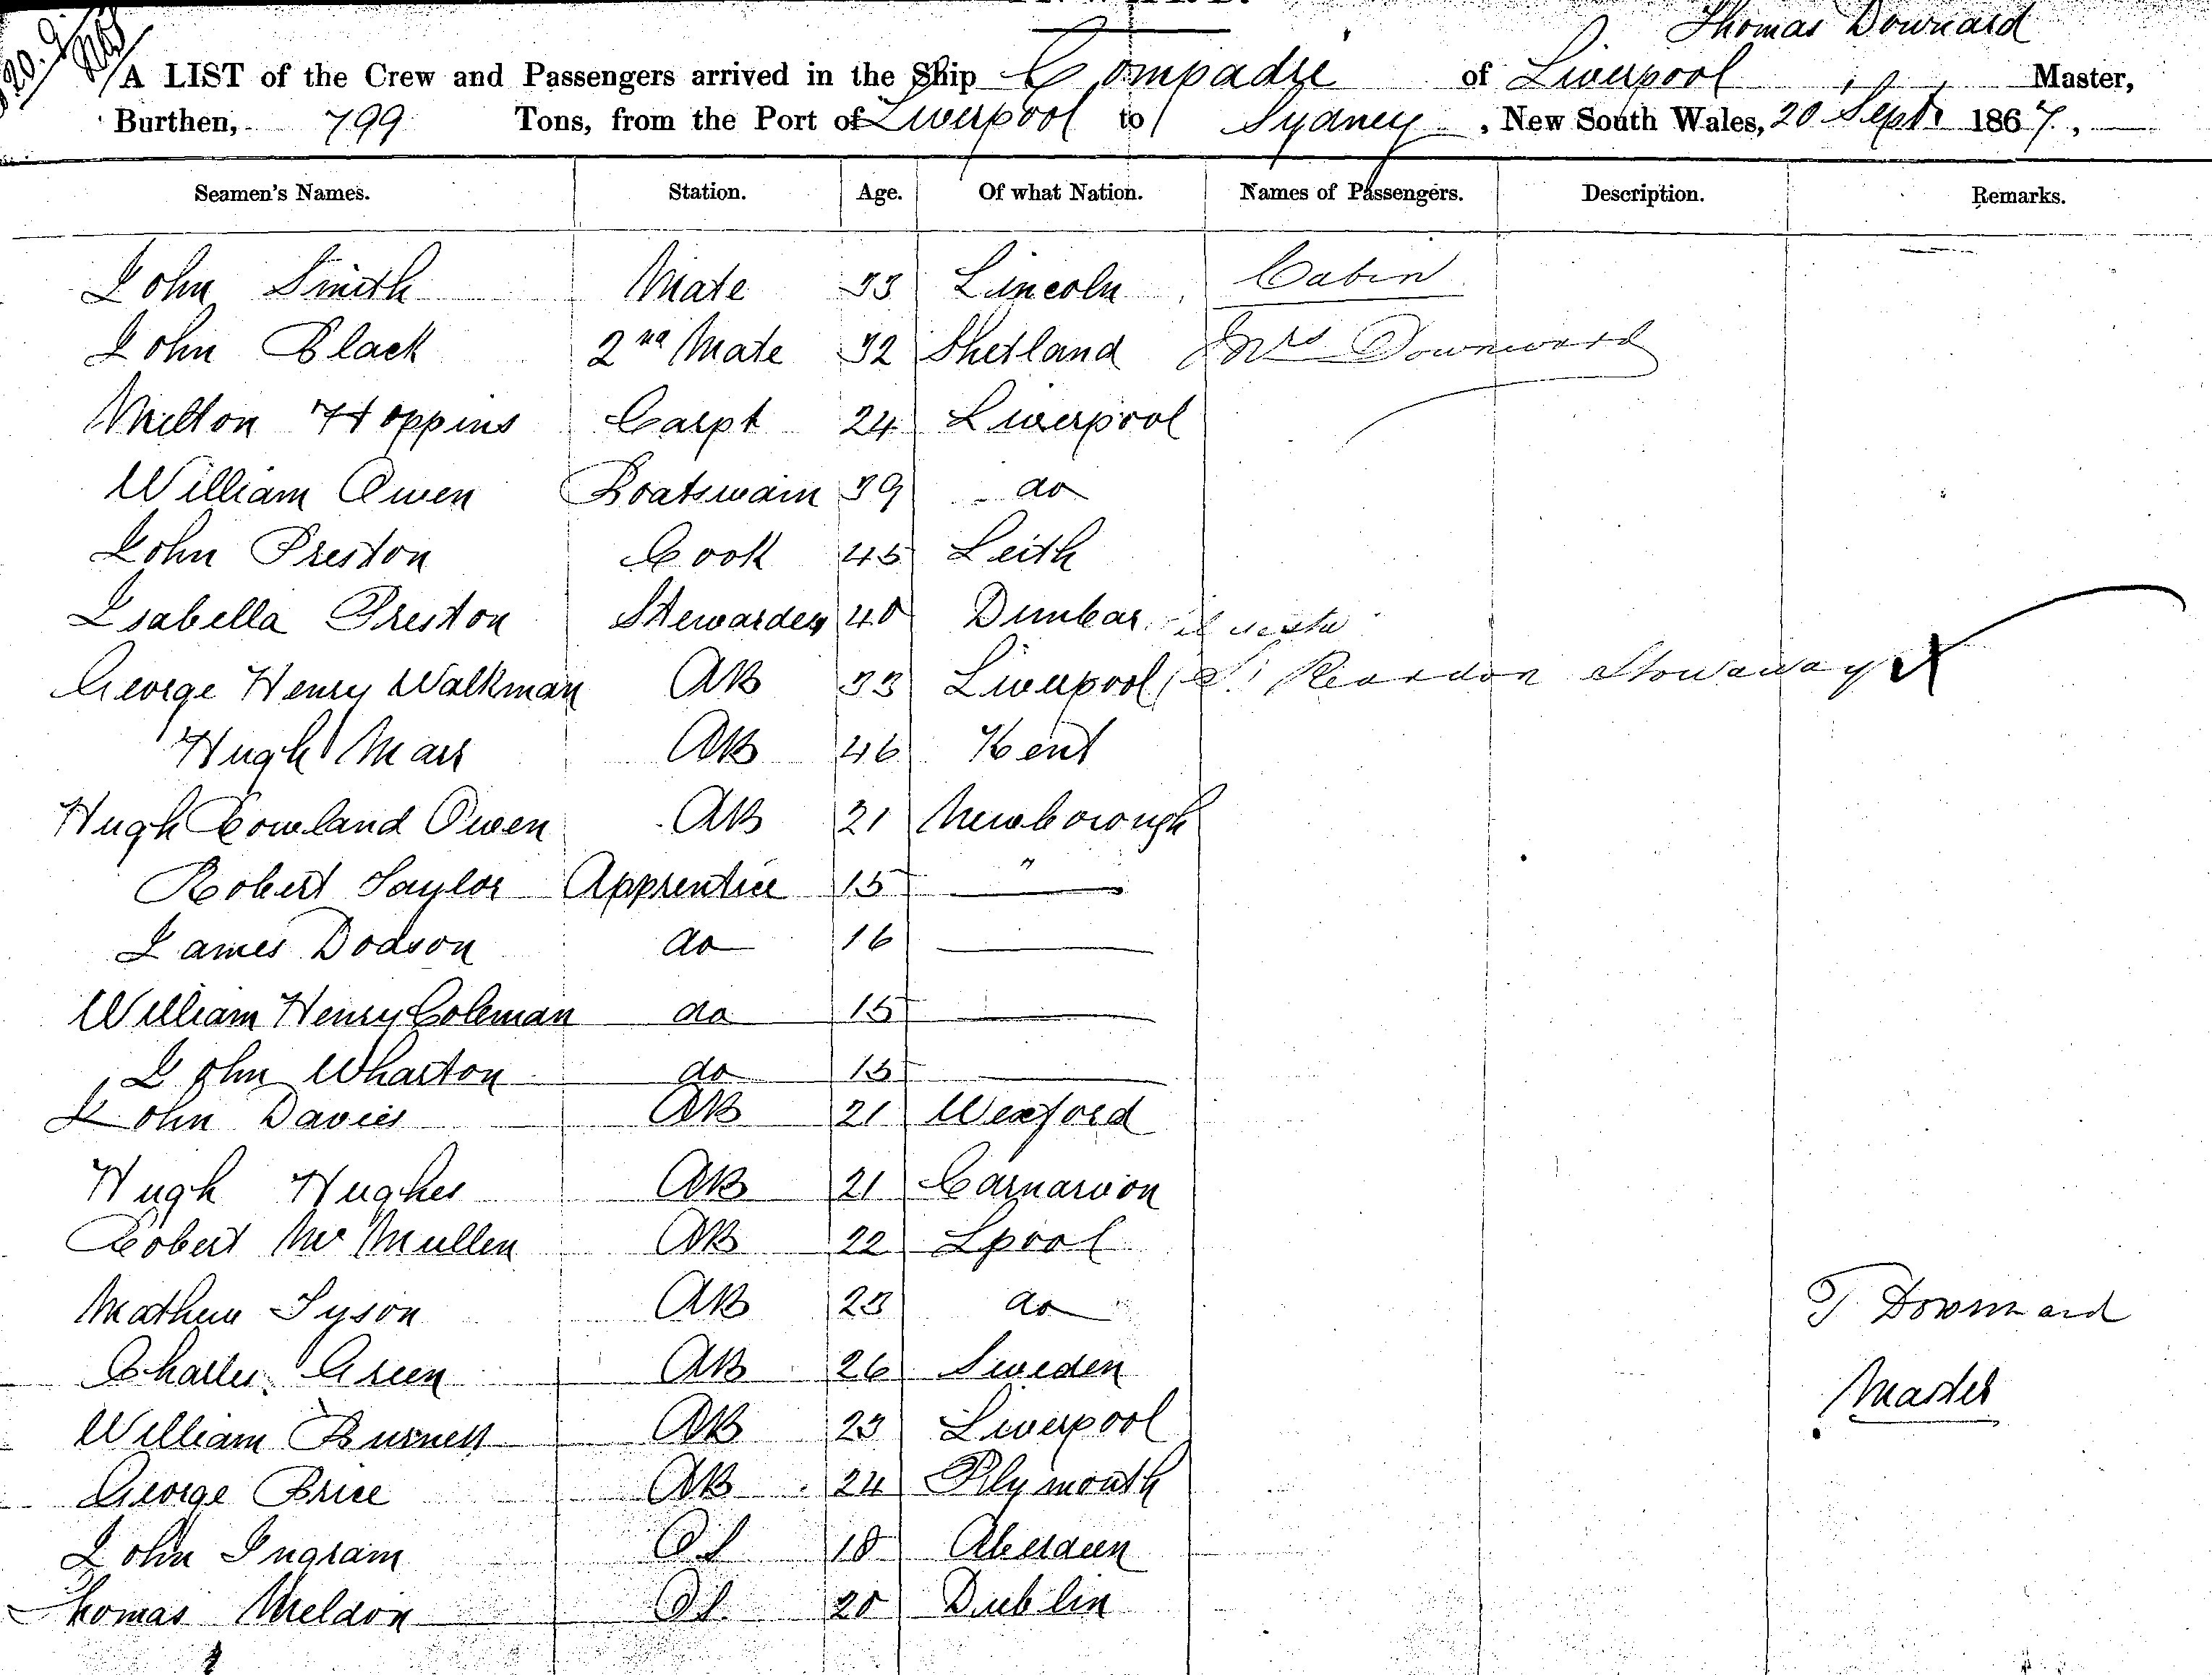 Thomas Downard
A LIST of the Crew and Passengers arrived in the Ship Compadre of Liverpool Master,
Burthen, 799 Tons, from the Port of Liverpool to Sydney, New South Wales, 20 Sept. 1867,
Seamen's Names. Station. Age. Of what Nation. Names of Passengers. Description. Remarks.
John Smith Mate 33 Lincoln Cabin
John Black 2nd Mate 32 Shetland Mrs Downward
Milton Hoppins Carpt 24 Liverpool
William Owen Boatswain 39 do
John Preston Cook 45 Leith
Isabella Preston Stewardess 40 Dunbar
George Henry Walkman AB 33 Liverpool Reardon Stowaway
Hugh Marr AB 46 Kent
Hugh Rowland Owen AB 21 Newborough
Robert Taylor Apprentice 15 "
James Dodson do 16
William Henry Coleman do 15
John Wharton do 15
John Davies AB 21 Wexford
Hugh Hughes AB 21 Carnarvon
Robert McMullen AB 22 Lpool
Mathew Tyson AB 23 do
T Downard
Charles Green AB 26 Sweden
Master
William Burness AB 23 Liverpool
George Brice AB 24 Plymouth
John Ingram OS 18 Aberdeen
Thomas Meldon OS 20 Dublin